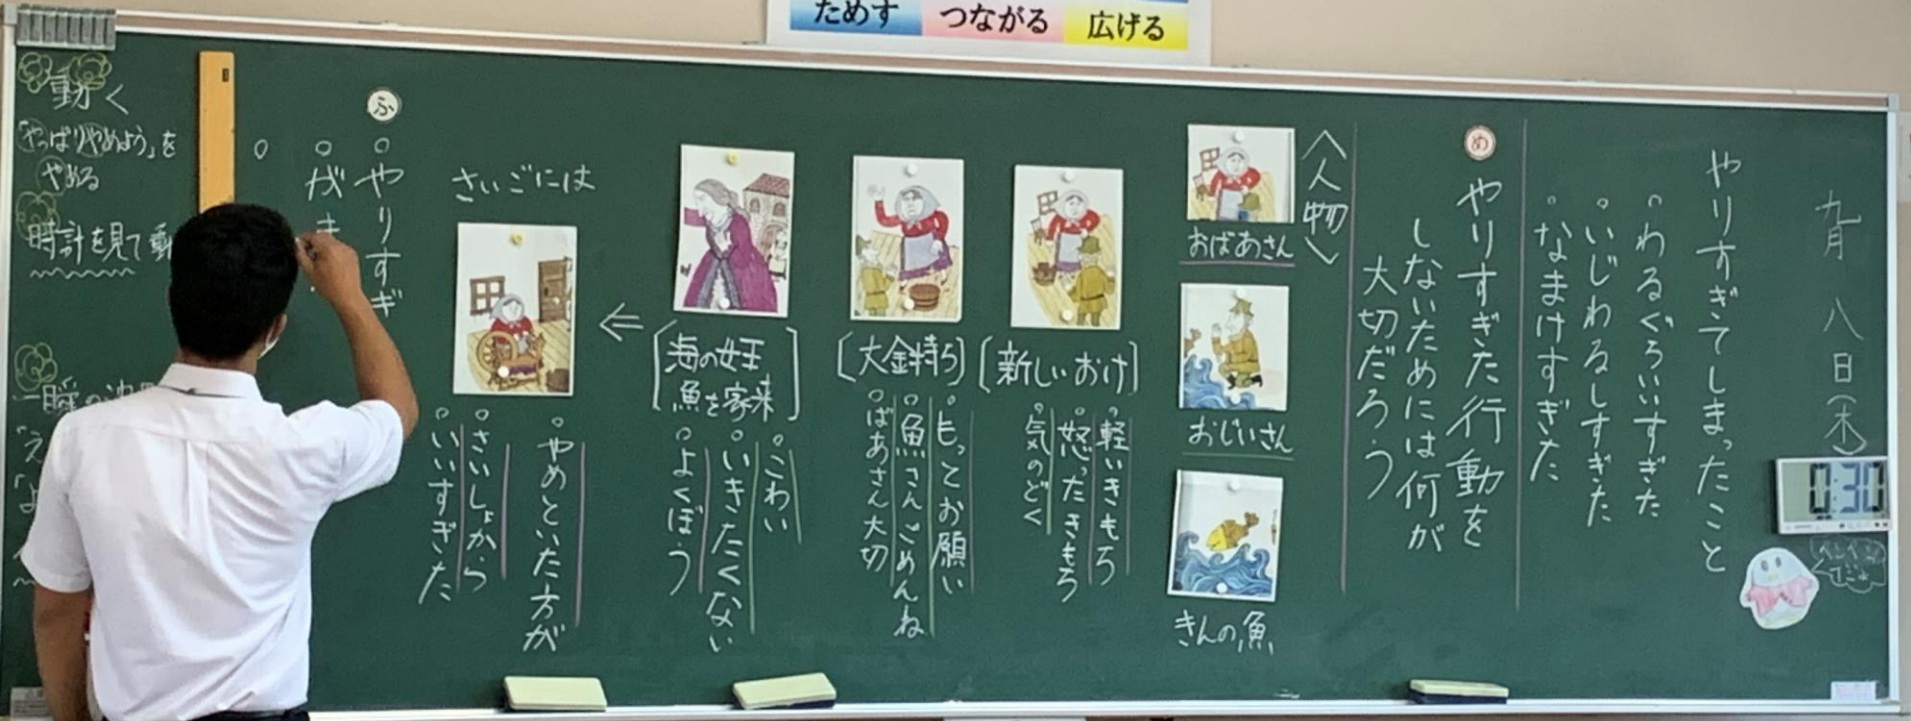 ためす つながる 広げる
九月八日(木)
0:30
やりすぎてしまったこと
。わるぐちいいすぎた
。いじわるしすぎた
。なまけすぎた
め
やりすぎた行動を
しないためには何が
大切だろう
〈人物〉
おばあさん
おじいさん
きんの魚
[新しいおけ]
。軽いきもち
。怒ったきもち
。気のどく
[大金持ち]
。もってお願い
。魚さんごめんね
。ばあさん大切
[海の女王
魚を家来]
。こわい
。いきたくない
。よくぼう
⇐
さいごには
。やめといた方が
。さいしょから
。いいすぎた
ふ
。やりすぎ
。がま
。
動く
「やっぱりやめよう」を
やめる
時計を見て動
一瞬の